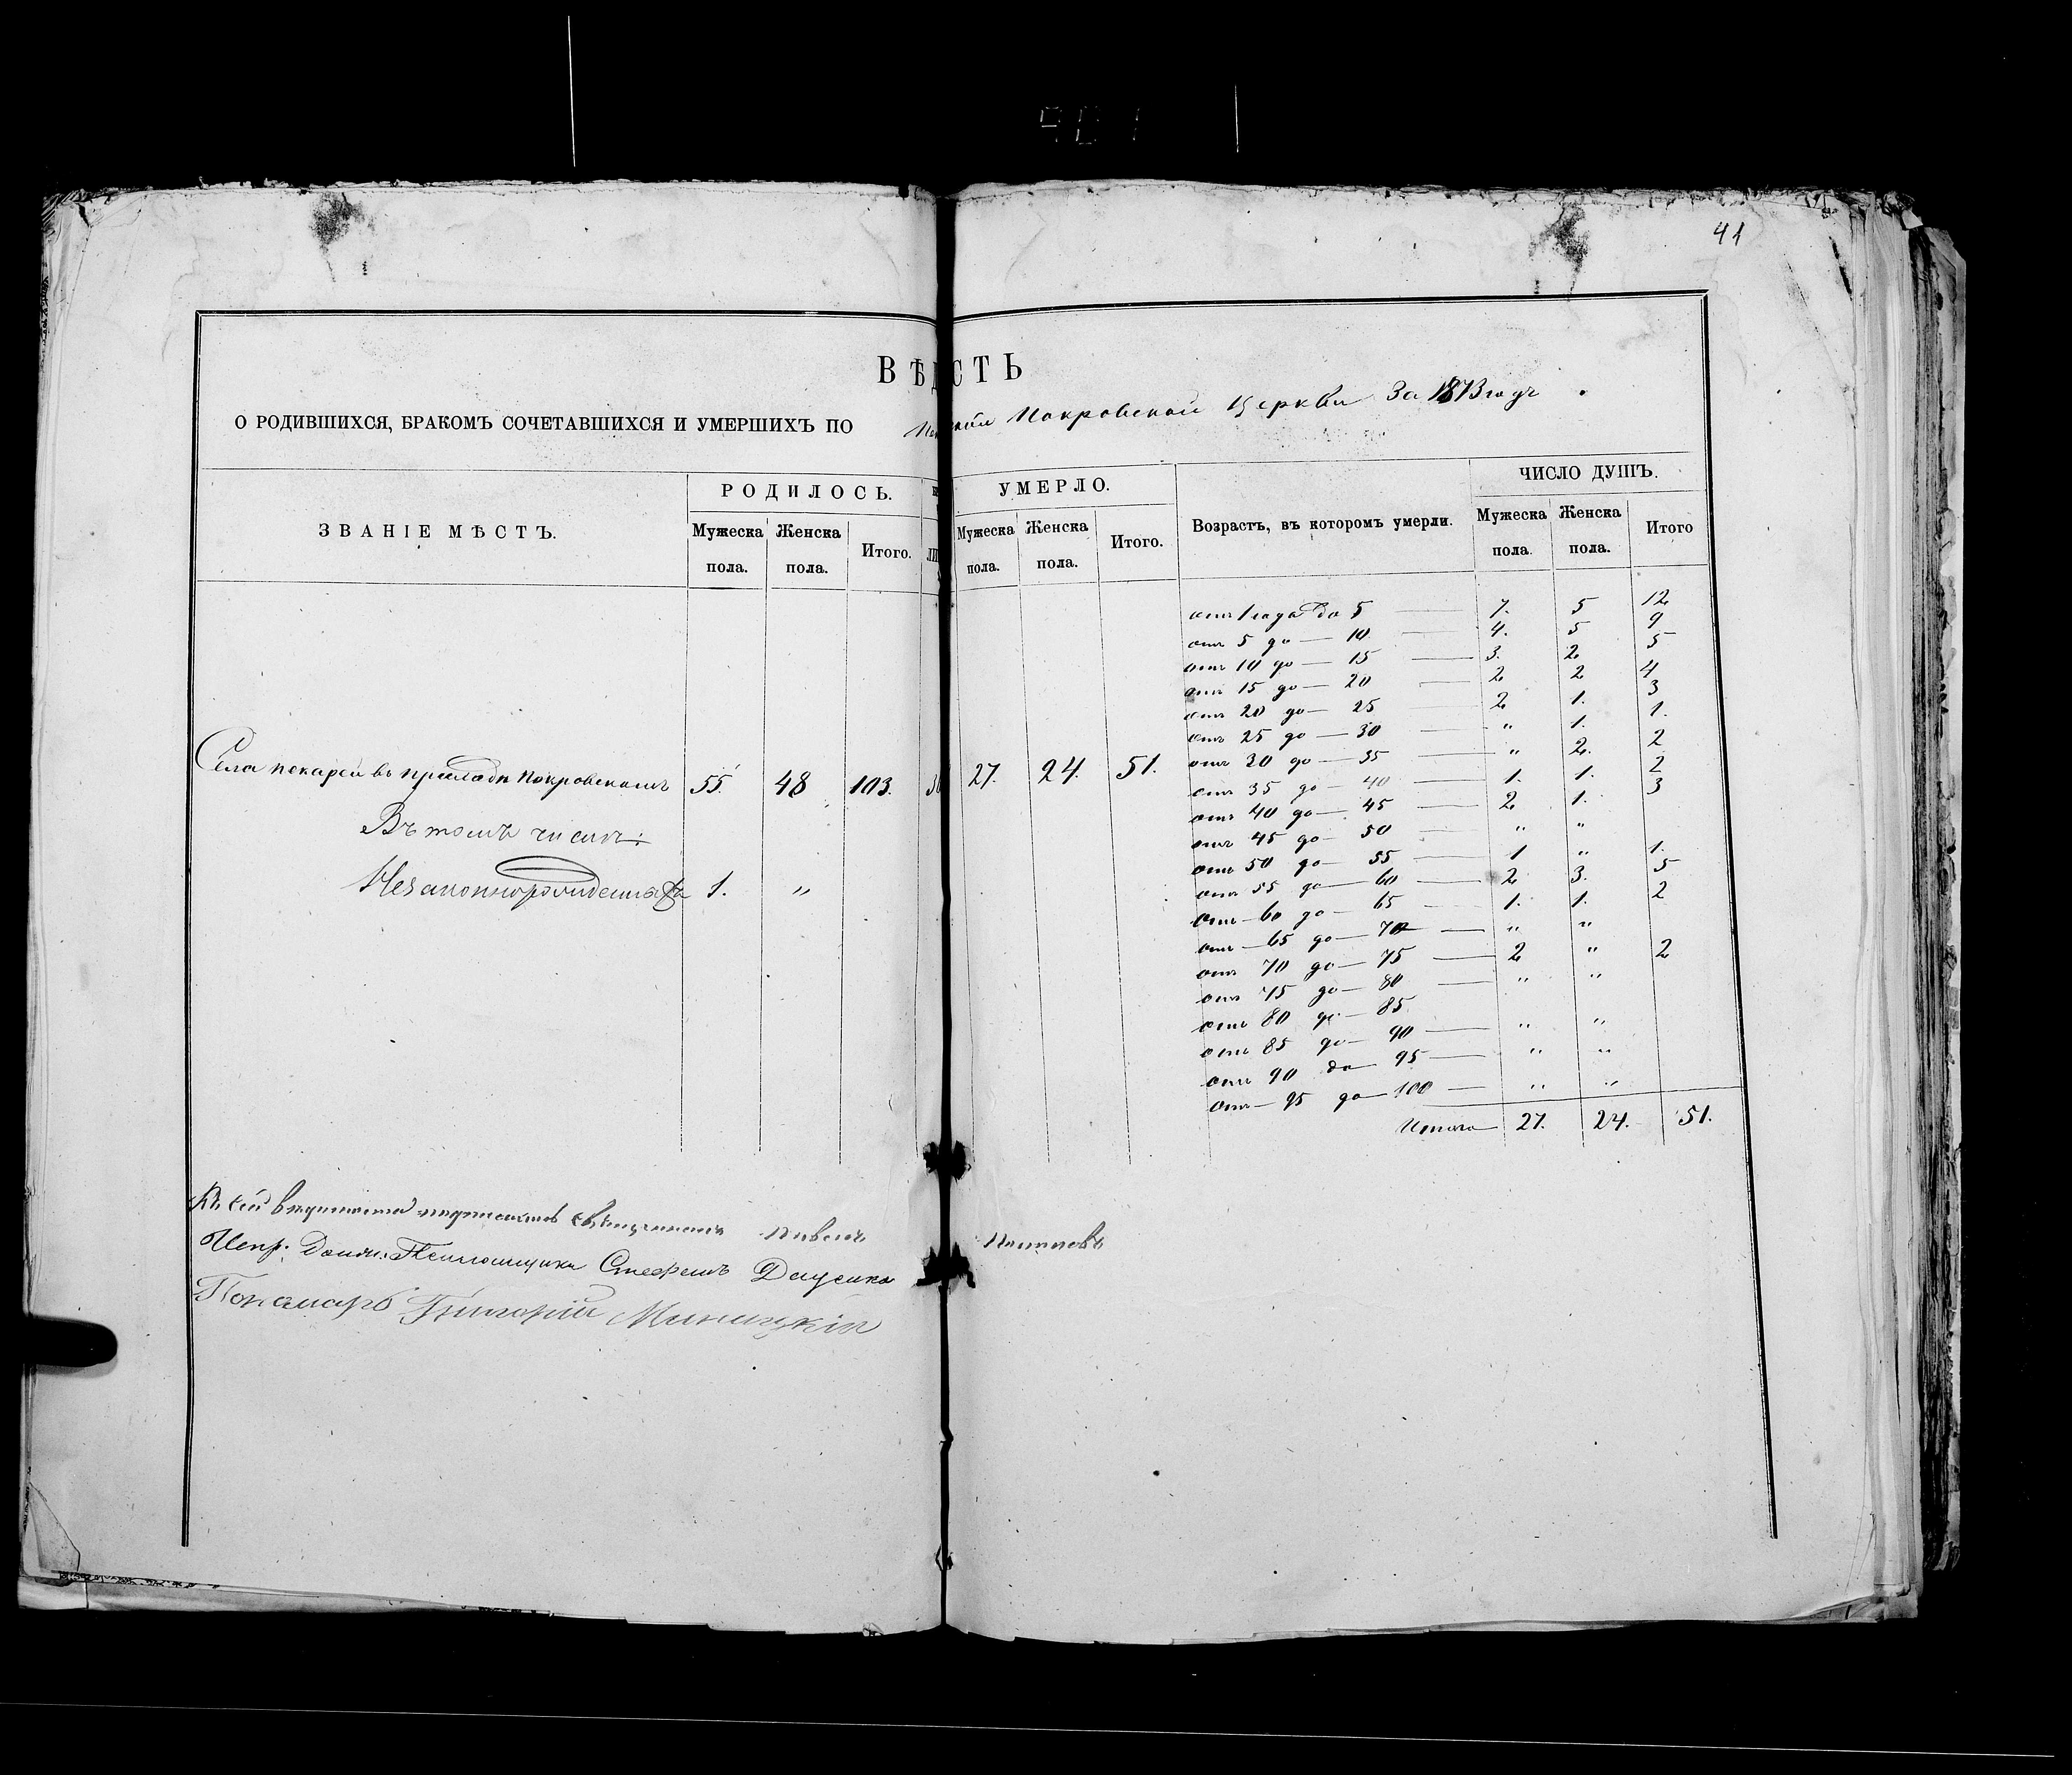 41
ВѢД СТЬ
О РОДИВШИХСЯ, БРАКОМЪ СОЧЕТАВШИХСЯ И УМЕРШИХЪ ПО Покровской Церкви За 1873 годъ.
ЗВАНІЕ МѢСТЪ. РОДИЛОСЬ. УМЕРЛО. Возрастъ, въ которомъ умерли. ЧИСЛО ДУШЪ.
Мужеска пола. Женска пола. Итого. Мужеска пола. Женска пола. Итого. Мужеска пола. Женска пола. Итого
отъ 1 года до 5 — 7. 5 12
отъ 5 до — 10 — 4. 5 9
отъ 10 до — 15 — 3. 2 5
отъ 15 до — 20 — 2 2 4
отъ 20 до — 25 — 2 1. 3
отъ 25 до — 30 — " 1. 1.
отъ 30 до — 35 — " 2. 2
отъ 35 до — 40 — 1. 1. 2
отъ 40 до — 45 — 2 1. 3
отъ 45 до — 50 — " "
отъ 50 до — 55 — 1 " 1.
отъ 55 до — 60 — 2 3. 5
отъ — 60 до — 65 — 1. 1. 2
отъ — 65 до — 70 — " "
отъ 70 до — 75 — 2 " 2
отъ 75 до — 80 — " "
отъ 80 до — 85
отъ 85 до — 90 — " "
отъ 90 до 95 — " "
отъ — 95 до — 100 — " "
Итого 27. 24. 51.
Села Пекарей въ приходѣ Покровскомъ 55. 48 103. 27. 24. 51.
Въ томъ числѣ:
Незаконнорожденныхъ 1. "
Къ сей вѣдомости подписались священникъ Павелъ
Испр. Стефанъ
Пономарь Григорій